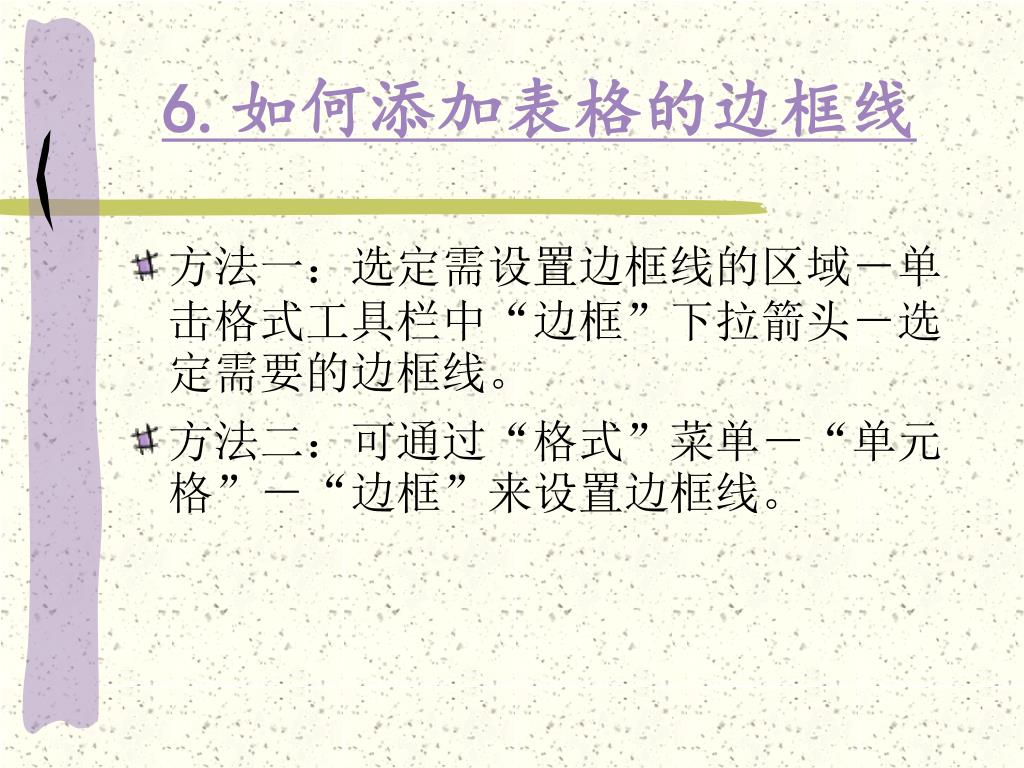 6.如何添加表格的边框线
方法一：选定需设置边框线的区域－单
击格式工具栏中“边框”下拉箭头－选
定需要的边框线。
方法二：可通过“格式”菜单－“单元
格”－“边框”来设置边框线。